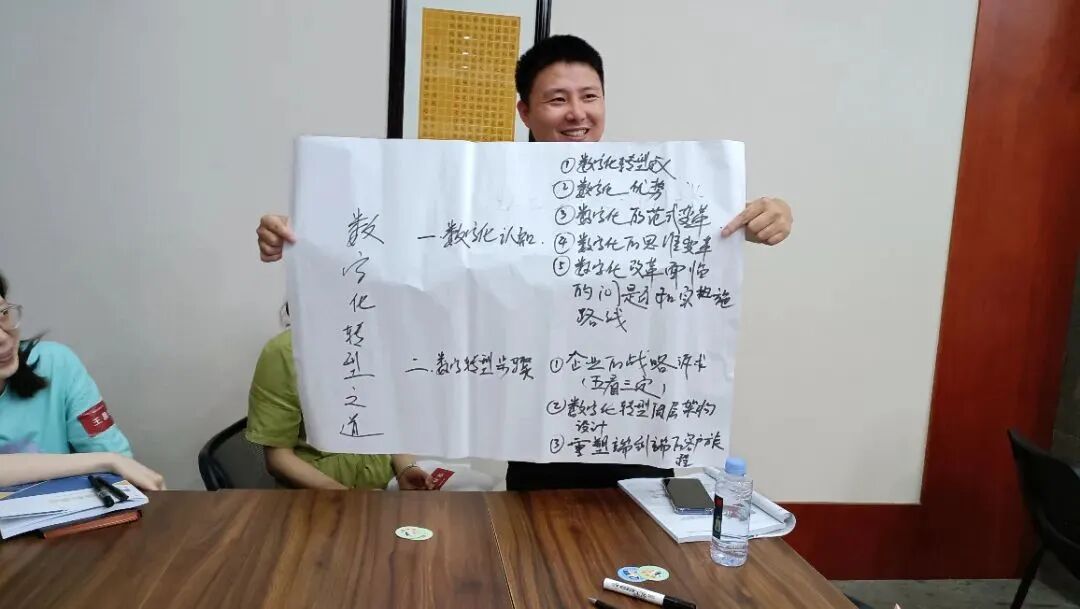 数字化转型之道
一.数字化认知.
①数字转型定义
②数字化优势
③数字化的范式变革
④数字化的思维变革
⑤数字化改革面临
的问题和实施
路线
二.数字转型步骤
①企业的战略诉求
(五看三定)
②数字化转型顶层架构
设计
③重塑端到端的客户旅
程
王